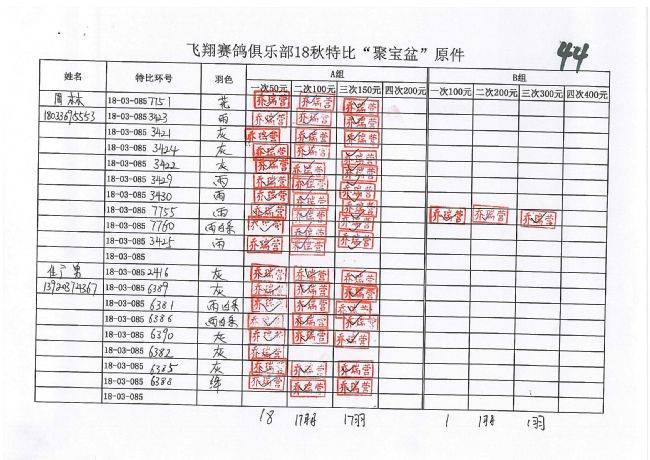 飞翔赛鸽俱乐部18秋特比“聚宝盆”原件
44
姓名 特比环号 羽色 A组 B组
一次50元 二次100元 三次150元 四次200元 一次100元 二次200元 三次300元 四次400元
周林 18-03-085 7151 花 乔瑞营 乔瑞营 乔瑞营
18033675553 18-03-085 3423 雨 乔瑞营 乔瑞营 乔瑞营
18-03-085 3421 灰 乔瑞营 乔瑞营 乔瑞营
18-03-085 3424 灰 乔瑞营 乔瑞营 乔瑞营
18-03-085 3422 灰 乔瑞营 乔瑞营 乔瑞营
18-03-085 3429 雨 乔瑞营 乔瑞营 乔瑞营
18-03-085 3430 雨 乔瑞营 乔瑞营 乔瑞营
18-03-085 7755 雨 乔瑞营 乔瑞营 乔瑞营 乔瑞营 乔瑞营 乔瑞营
18-03-085 7760 雨白条 乔瑞营 乔瑞营 乔瑞营
18-03-085 3425 雨 乔瑞营 乔瑞营 乔瑞营
18-03-085
18-03-085 2416 灰 乔瑞营 乔瑞营 乔瑞营
13920374367 18-03-085 6389 灰 乔瑞营 乔瑞营 乔瑞营
18-03-085 6381 雨白条 乔瑞营 乔瑞营 乔瑞营
18-03-085 6386 雨白条 乔瑞营 乔瑞营 乔瑞营
18-03-085 6390 灰 乔瑞营 乔瑞营 乔瑞营
18-03-085 6382 灰 乔瑞营
18-03-085 6385 灰 乔瑞营 乔瑞营 乔瑞营
18-03-085 6388 绛 乔瑞营 乔瑞营 乔瑞营
18-03-085
18 17羽 17羽 1 1羽 1羽